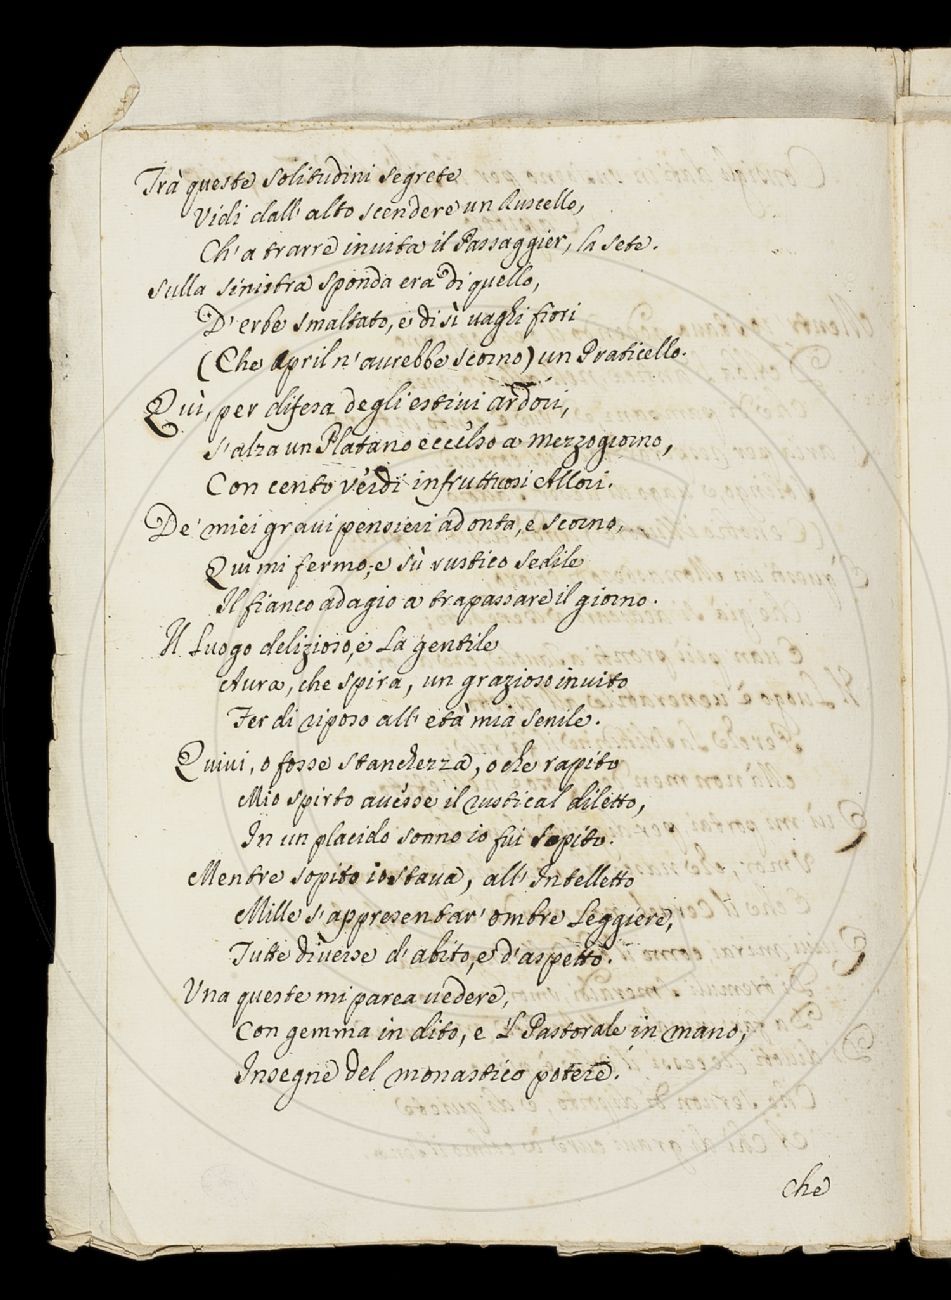 Trà queste solitudini segrete
Vidi dall' alto scendere un Ruscello,
Ch' a trarre invita il Passaggier, la sete.
Sulla sinistra sponda era di quello,
D' erbe smaltato, e di sì vaghi fiori
(Che April n' aurebbe scorno) un Praticello.
Quì, per difesa degli estivi ardori,
s' alza un Platano eccelso a mezzogiorno,
Con cento verdi infruttuosi Allori.
De' miei gravi pensieri ad onta, e scorno,
Qui mi fermo, e sù rustico sedile
Il fianco adagio a trapassare il giorno.
Il Luogo delizioso, e La gentile
Aura, che spira, un grazioso invito
Fer di riposo all' età mia senile.
Quivi, o fosse stanchezza, o che rapito
Mio spirto avesse il rustical diletto,
In un placido sonno io fui sopito.
Mentre sopito io stava, all' Intelletto
Mille s' appresentar' ombre Leggiere,
Tutte diverse d' abito, e d' aspetto.
Una queste mi parea vedere,
Con gemma in dito, e il Pastorale in mano,
Insegne del monastico potere.
che